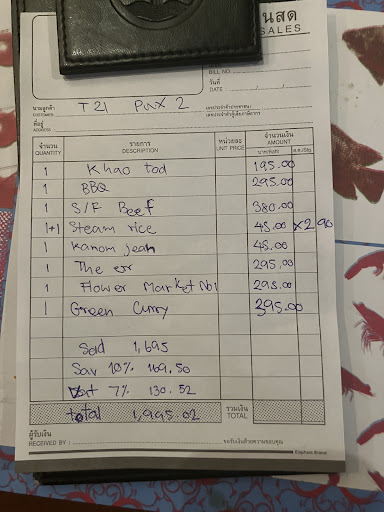 นสด
SALES
BILL NO.
วันที่
DATE
นามลูกค้า T21 Pnx 2
CUSTOMER
ที่อยู่
ADDRESS
จำนวน รายการ หน่วยละ จำนวนเงิน
QUANTITY DESCRIPTION UNIT PRICE AMOUNT
1 Khao tod 195.00
1 BBQ 295.00
1 S/F Beef 380.00
1+1 Steam rice 45.00 x2 90
1 Kanom jean 45.00
1 The err 295.00
1 Flower Market No1 295.00
1 Green Curry 395.00
Sold 1,695
Sav 10% 169.50
Vat 7% 130.52
total 1,995.02 รวมเงิน
TOTAL
ผู้รับเงิน
RECEIVED BY : ขอรับเงินด้วยความขอบคุณ
Elephant Brand